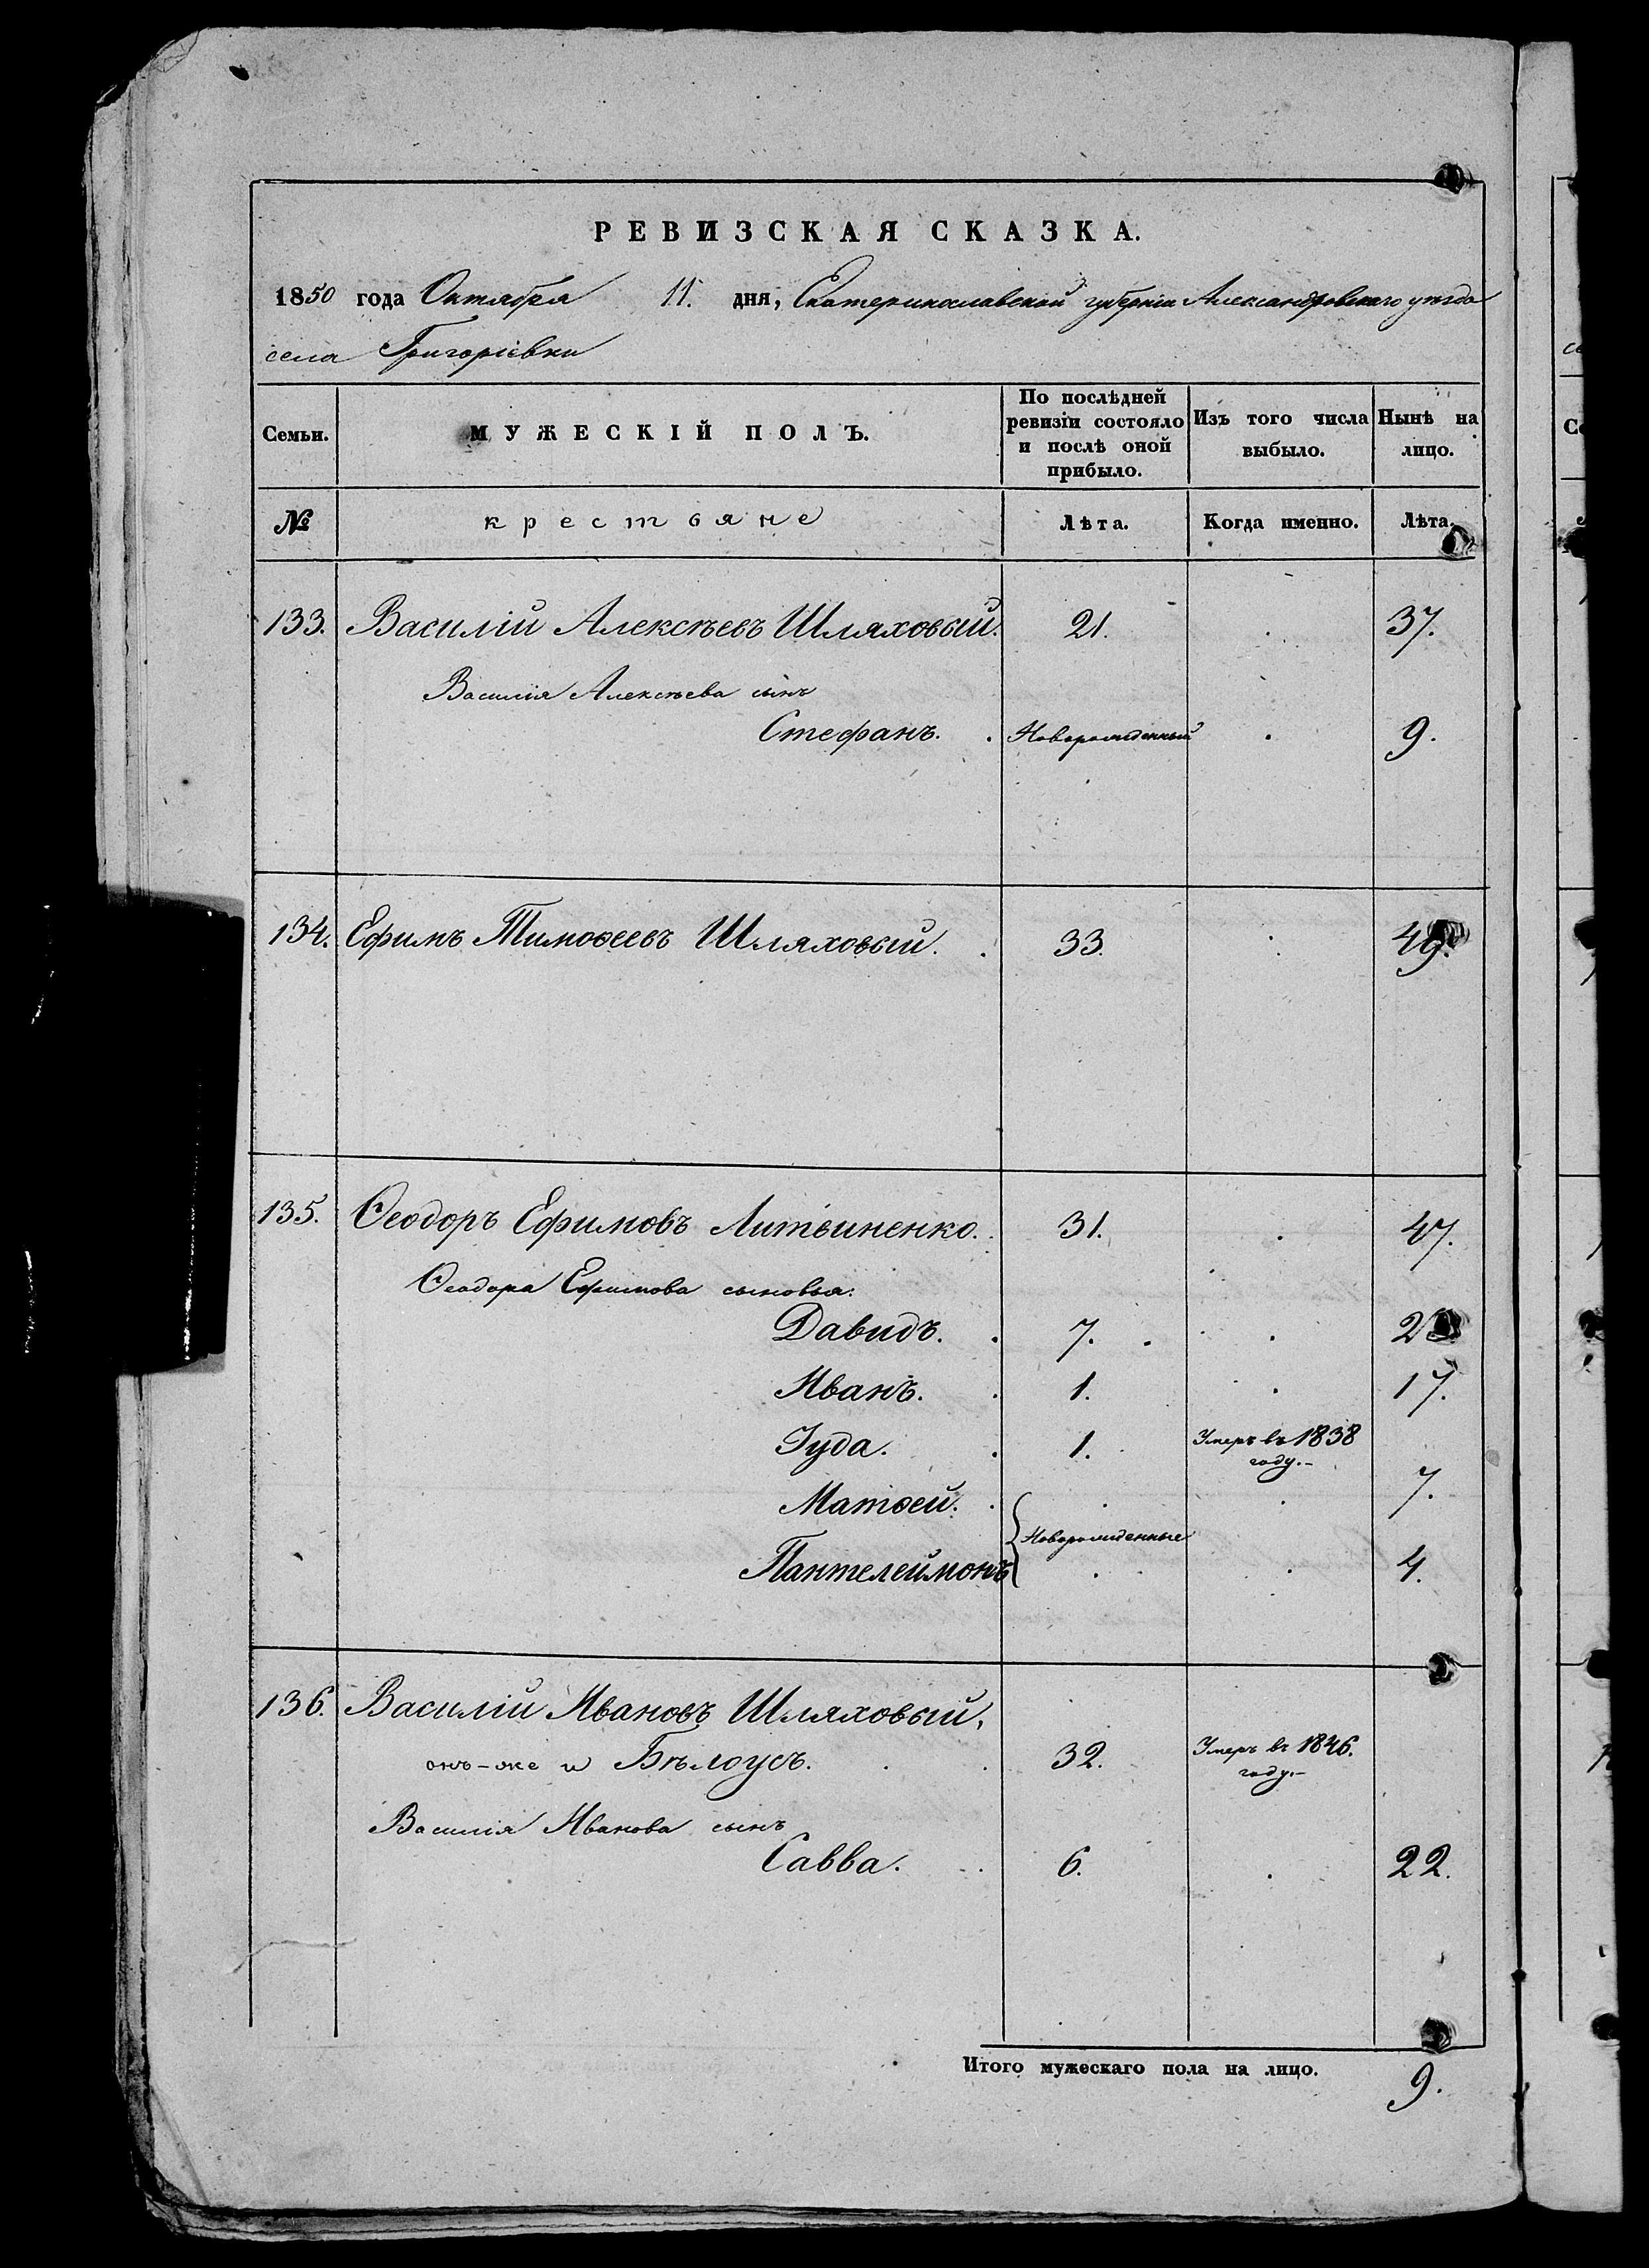 РЕВИЗСКАЯ СКАЗКА.
1850 года Октября 11. дня, Екатеринославской губерніи Александровскаго уѣзда
села Григоріевки
Семьи. МУЖЕСКІЙ ПОЛЪ. По послѣдней ревизіи состояло и послѣ оной прибыло. Изъ того числа выбыло. Нынѣ на лицо.
№ крестьяне Лѣта. Когда именно. Лѣта.
133. Василій Алексѣевъ Шляховый. 21. 37.
Василія Алексѣева сынъ
Стефанъ. Новорожденный 9.
134. Ефимъ Тимоѳеевъ Шляховый. 33. 49.
135. Ѳеодоръ Ефимовъ Литвиненко. 31. 47.
Ѳеодора Ефимова сыновья:
Давидъ. 7. 23.
Иванъ. 1. 17.
Іуда. 1. Умеръ въ 1838 году.-
Матѳей. 7.
Новорожденные
Пантелеймонъ 4.
136. Василій Ивановъ Шляховый,
онъ-же и Бѣлоусъ. 32. Умеръ въ 1846. году.-
Василія Иванова сынъ
Савва. 6. 22.
Итого мужескаго пола на лицо. 9.